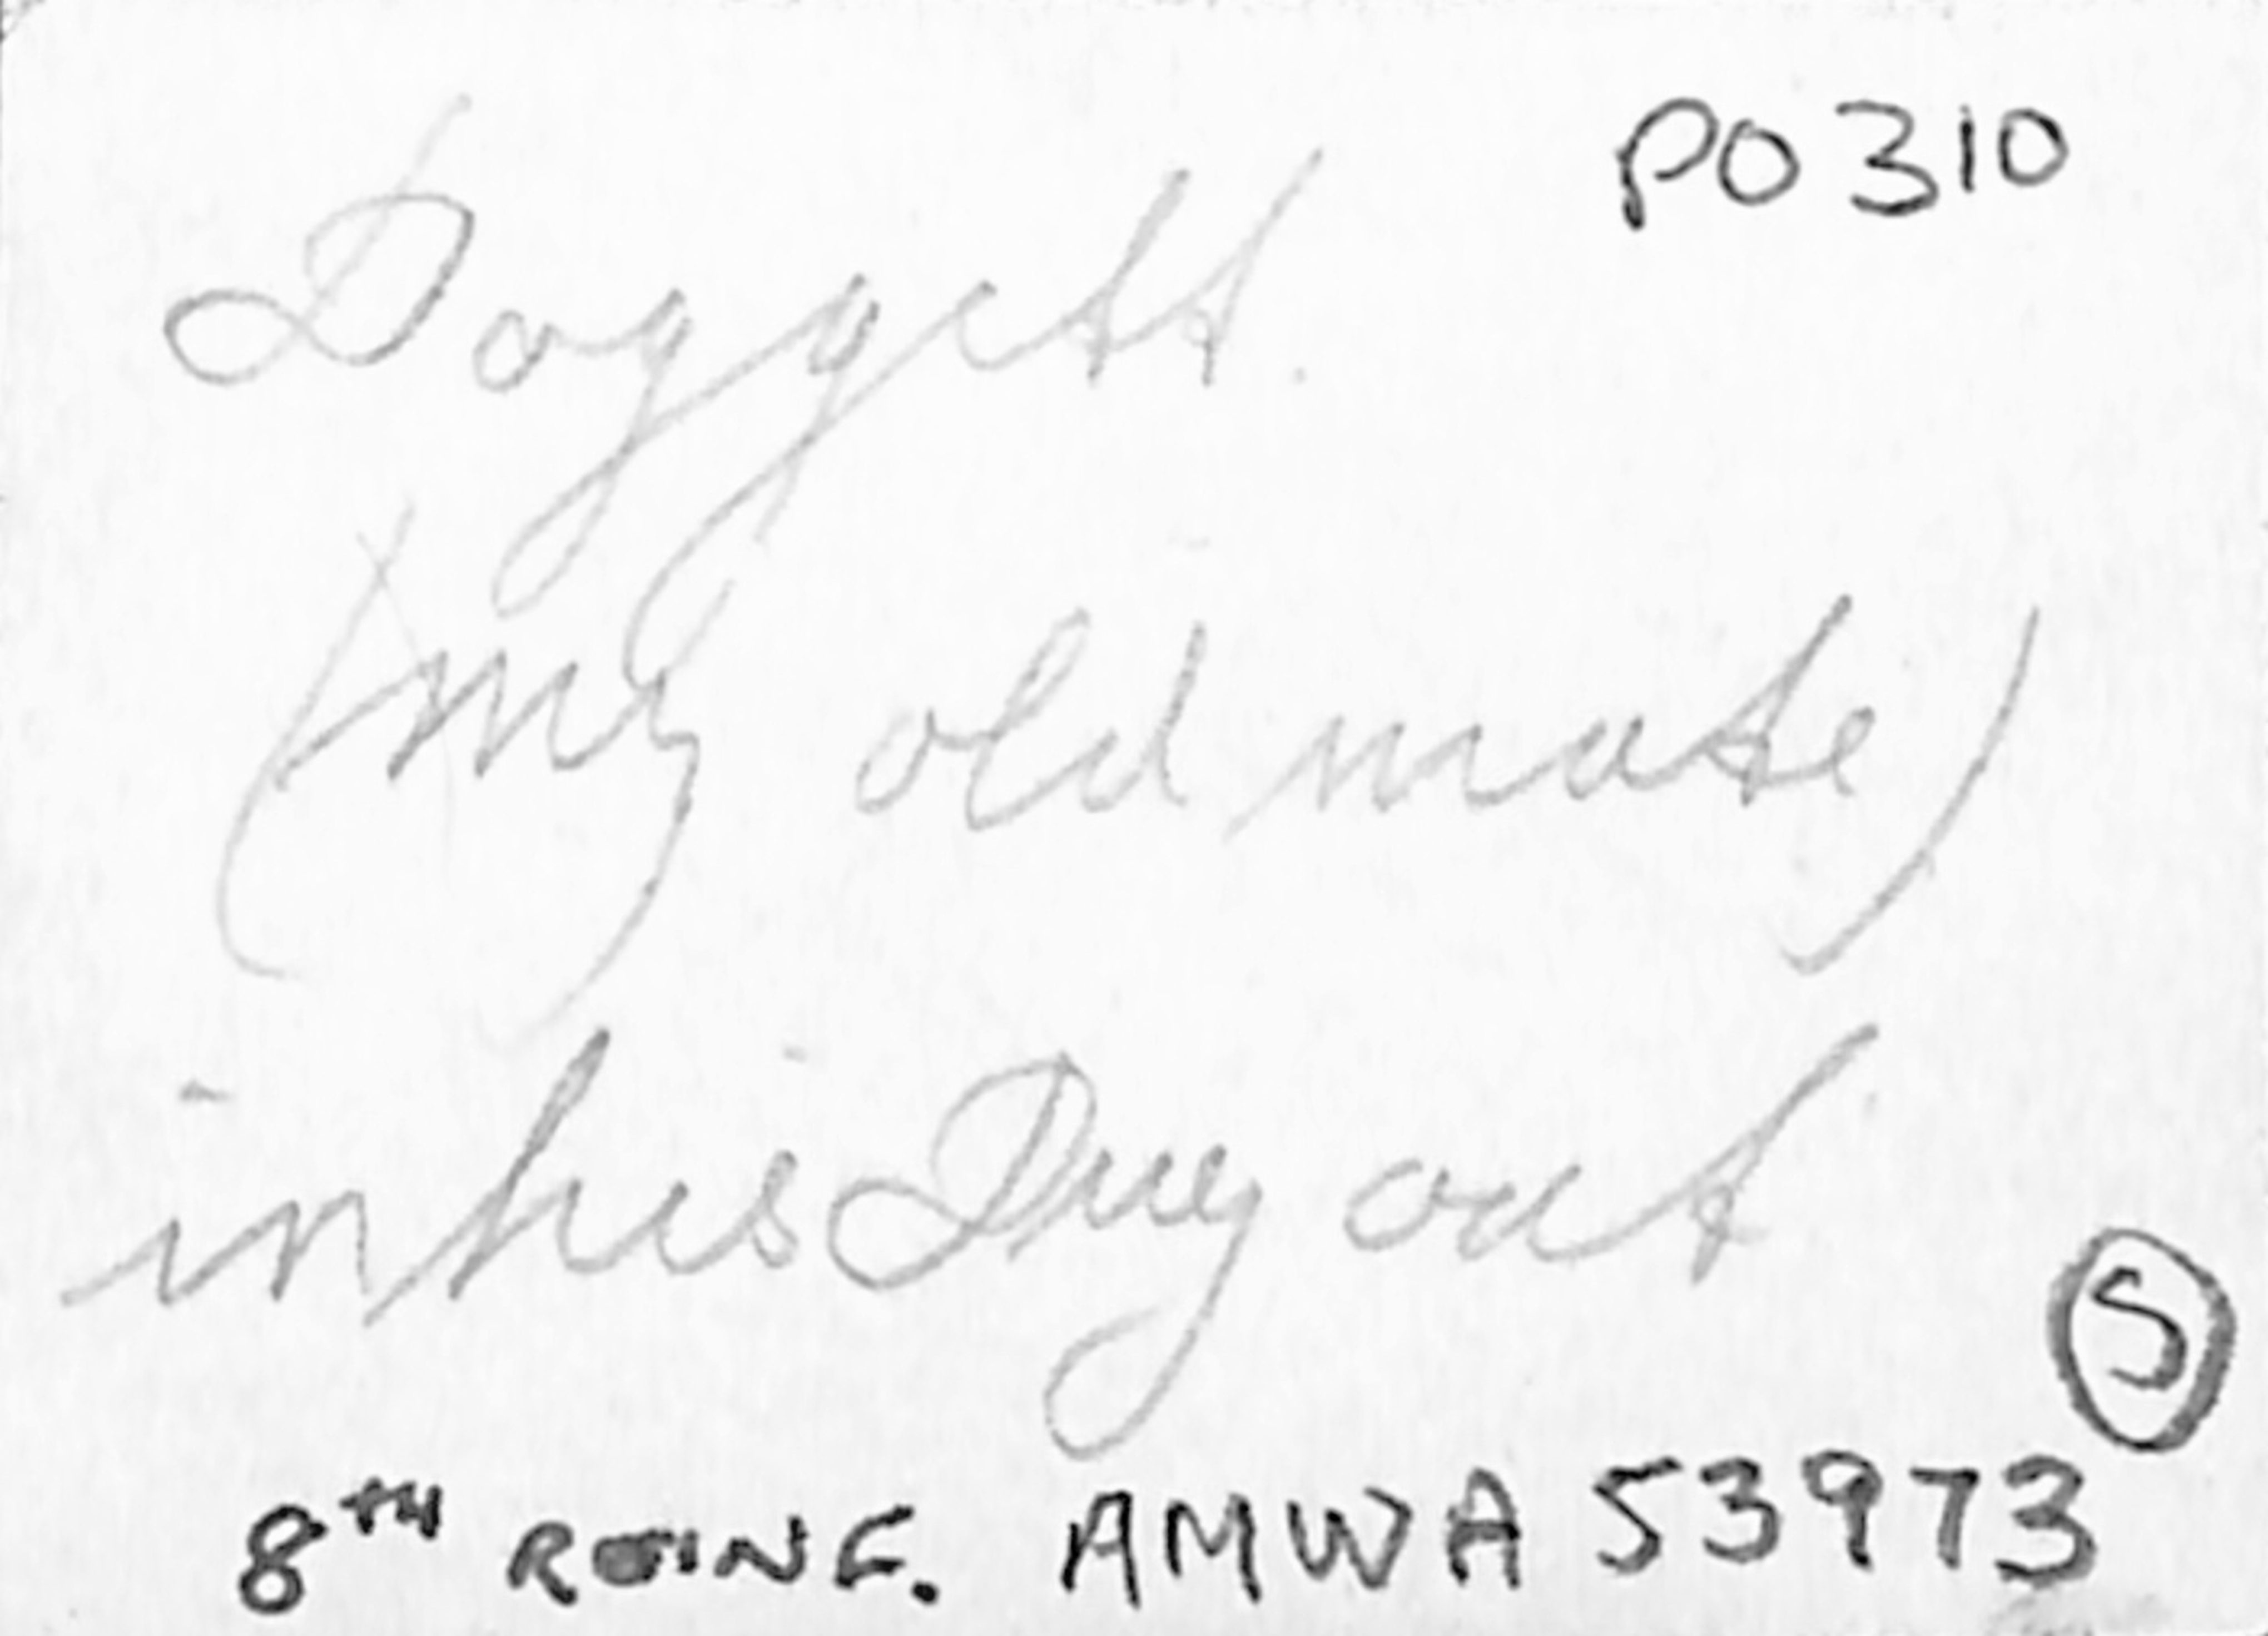 PO 310
Doggett.
(my old mate)
in his Dug out
S
8TH REINF. AMWA 53973